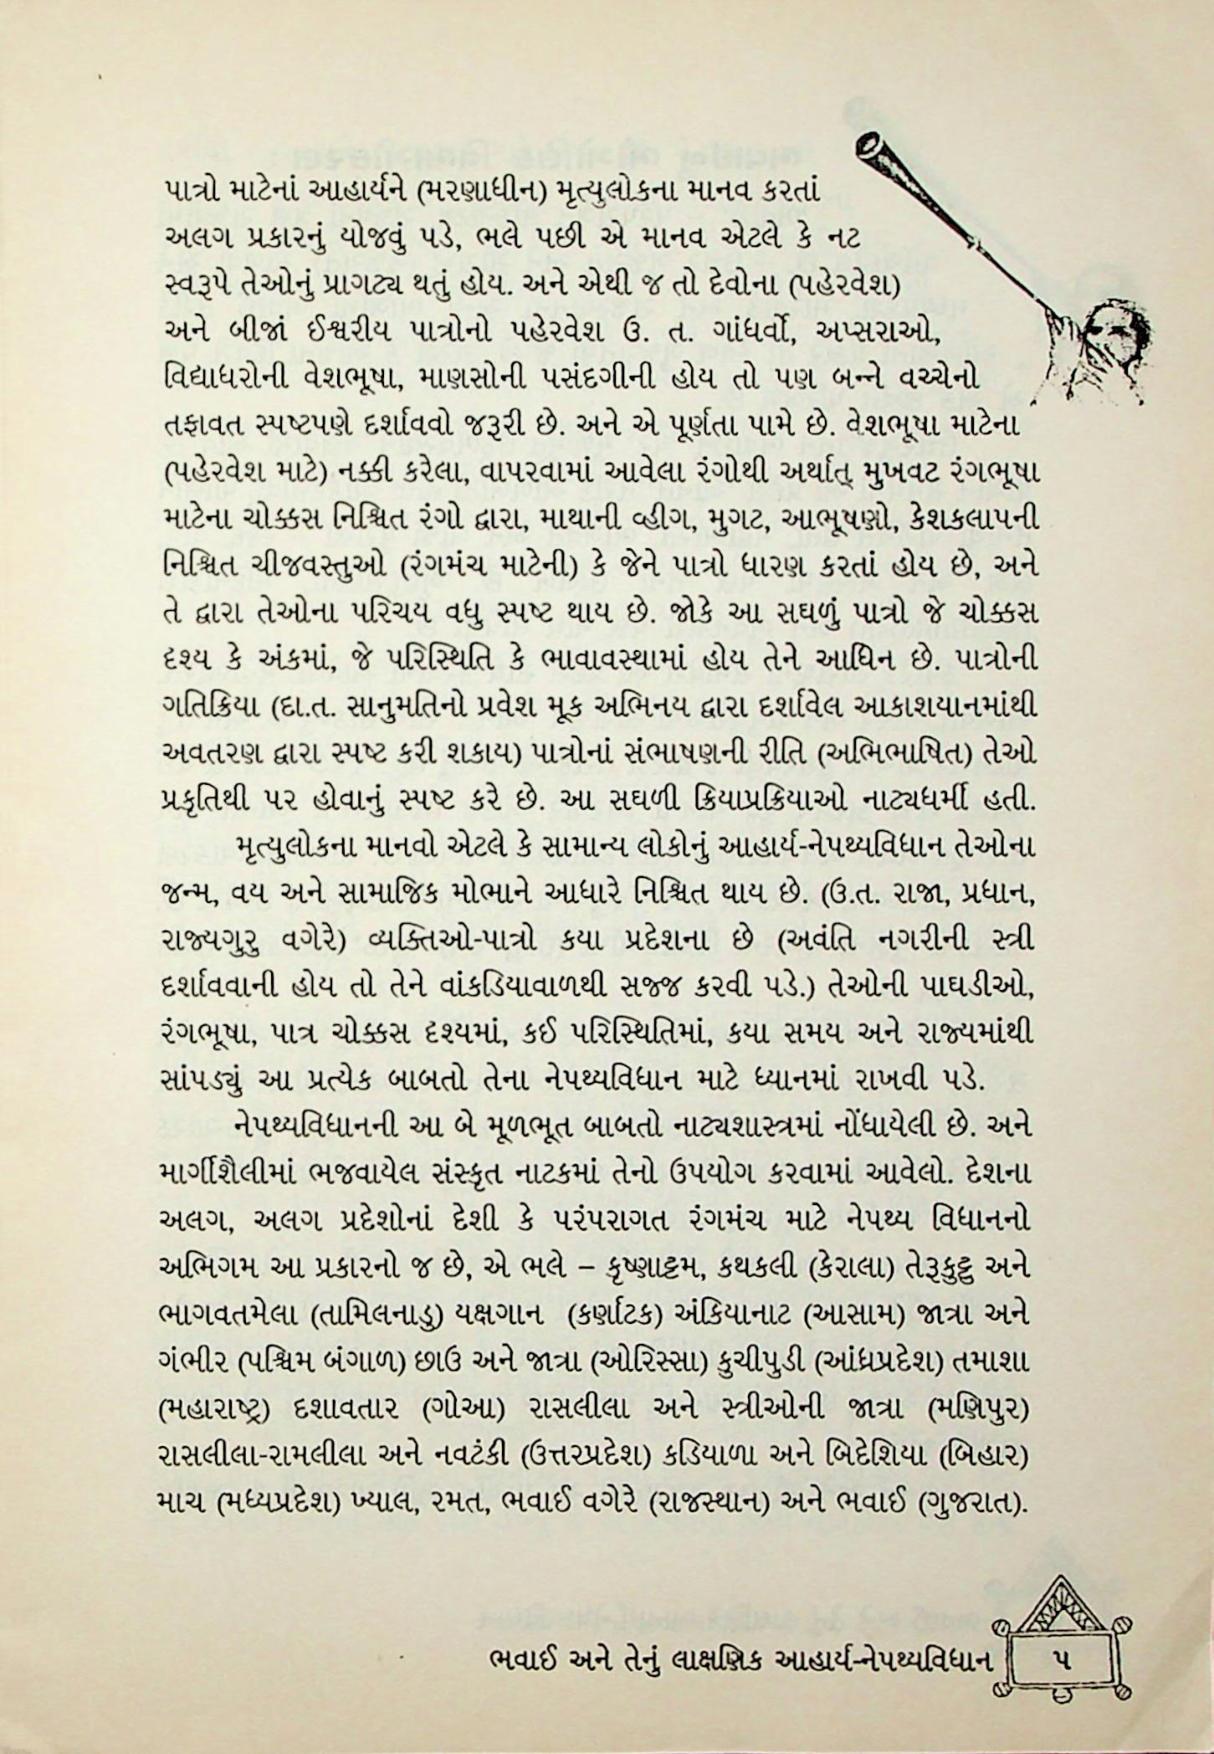 પાત્રો માટેનાં આહાર્યને (મરણાધીન) મૃત્યુલોકના માનવ કરતાં
અલગ પ્રકારનું યોજવું પડે, ભલે પછી એ માનવ એટલે કે નટ
સ્વરૂપે તેઓનું પ્રાગટ્ય થતું હોય. અને એથી જ તો દેવોના (પહેરવેશ)
અને બીજાં ઈશ્વરીય પાત્રોનો પહેરવેશ ઉ. ત. ગાંધર્વો, અપ્સરાઓ,
વિદ્યાધરોની વેશભૂષા, માણસોની પસંદગીની હોય તો પણ બન્ને વચ્ચેનો
તફાવત સ્પષ્ટપણે દર્શાવવો જરૂરી છે. અને એ પૂર્ણતા પામે છે. વેશભૂષા માટેના
(પહેરવેશ માટે) નક્કી કરેલા, વાપરવામાં આવેલા રંગોથી અર્થાત્ મુખવટ રંગભૂષા
માટેના ચોક્કસ નિશ્ચિત રંગો દ્વારા, માથાની વ્હીગ, મુગટ, આભૂષણો, કેશકલાપની
નિશ્ચિત ચીજવસ્તુઓ (રંગમંચ માટેની) કે જેને પાત્રો ધારણ કરતાં હોય છે, અને
તે દ્વારા તેઓના પરિચય વધુ સ્પષ્ટ થાય છે. જોકે આ સઘળું પાત્રો જે ચોક્કસ
દૃશ્ય કે અંકમાં, જે પરિસ્થિતિ કે ભાવાવસ્થામાં હોય તેને આધિન છે. પાત્રોની
ગતિક્રિયા (દા.ત. સાનુમતિનો પ્રવેશ મૂક અભિનય દ્વારા દર્શાવેલ આકાશયાનમાંથી
અવતરણ દ્વારા સ્પષ્ટ કરી શકાય) પાત્રોનાં સંભાષણની રીતિ (અભિભાષિત) તેઓ
પ્રકૃતિથી પર હોવાનું સ્પષ્ટ કરે છે. આ સઘળી ક્રિયાપ્રક્રિયાઓ નાટ્યધર્મી હતી.
મૃત્યુલોકના માનવો એટલે કે સામાન્ય લોકોનું આહાર્ય-નેપથ્યવિધાન તેઓના
જન્મ, વય અને સામાજિક મોભાને આધારે નિશ્ચિત થાય છે. (ઉ.ત. રાજા, પ્રધાન,
રાજ્યગુરુ વગેરે) વ્યક્તિઓ-પાત્રો કયા પ્રદેશના છે (અવંતિ નગરીની સ્ત્રી
દર્શાવવાની હોય તો તેને વાંકડિયાવાળથી સજ્જ કરવી પડે.) તેઓની પાઘડીઓ,
રંગભૂષા, પાત્ર ચોક્કસ દૃશ્યમાં, કઈ પરિસ્થિતિમાં, કયા સમય અને રાજ્યમાંથી
સાંપડ્યું આ પ્રત્યેક બાબતો તેના નેપથ્યવિધાન માટે ધ્યાનમાં રાખવી પડે.
નેપથ્યવિધાનની આ બે મૂળભૂત બાબતો નાટ્યશાસ્ત્રમાં નોંધાયેલી છે. અને
માર્ગીશૈલીમાં ભજવાયેલ સંસ્કૃત નાટકમાં તેનો ઉપયોગ કરવામાં આવેલો. દેશના
અલગ, અલગ પ્રદેશોનાં દેશી કે પરંપરાગત રંગમંચ માટે નેપથ્ય વિધાનનો
અભિગમ આ પ્રકારનો જ છે, એ ભલે – કૃષ્ણાટ્ટમ, કથકલી (કેરાલા) તેરૂકુટ્ટુ અને
ભાગવતમેલા (તામિલનાડુ) યક્ષગાન (કર્ણાટક) અંકિયાનાટ (આસામ) જાત્રા અને
ગંભીર (પશ્ચિમ બંગાળ) છાઉ અને જાત્રા (ઓરિસ્સા) કુચીપુડી (આંધ્રપ્રદેશ) તમાશા
(મહારાષ્ટ્ર) દશાવતાર (ગોઆ) રાસલીલા અને સ્ત્રીઓની જાત્રા (મણિપુર)
રાસલીલા-રામલીલા અને નવટંકી (ઉત્તરપ્રદેશ) કડિયાળા અને બિદેશિયા (બિહાર)
માચ (મધ્યપ્રદેશ) ખ્યાલ, રમત, ભવાઈ વગેરે (રાજસ્થાન) અને ભવાઈ (ગુજરાત).
ભવાઈ અને તેનું લાક્ષણિક આહાર્ય-નેપથ્યવિધાન ૫